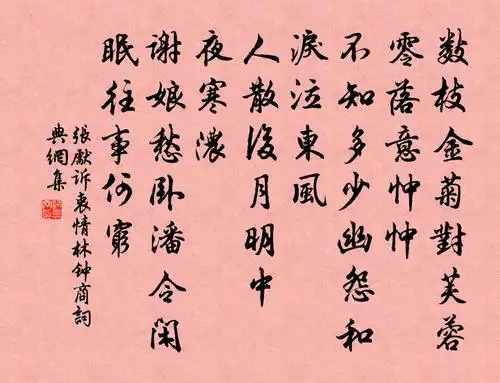 數枝金菊對芙蓉
零落意忡忡
不知多少幽怨和
淚泣東風
人散後月明中
夜寒濃
謝娘愁臥潘令閑
眠往事何窮
張獻訴衷情林钟商詞
典網集